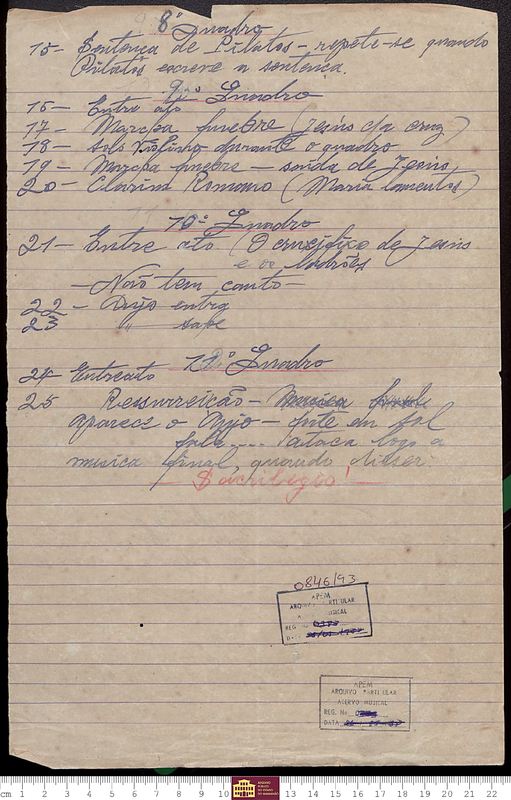 8º Quadro
15- Sentença de Pilatos - repete-se quando
Pilatos escreve a sentença.
9º Quadro
16- Entre ato
17- Marcha funebre (Jesus da cruz)
18- Solo Violino durante o quadro
19- Marcha funebre - saida de Jesus
20- Clarim Romano (Maria lamentos)
10º Quadro
21- Entre ato (O crucifixo de Jesus
e os ladrões
- Não tem canto -
22- Anjo entra
23 " sahe
11º Quadro
24 Entreato
25 Ressurreição - Musica
aparece o Anjo - em sol
fala.... ataca logo a
musica final, quando disser:
- Sacrilegio! -
0846/93
APEM
ARQUIVO PARTICULAR
MUSICAL
REG.
DATA
APEM
ARQUIVO PARTICULAR
ACERVO MUSICAL
REG. No
DATA
cm 1 2 3 4 5 6 7 8 9 10 13 14 15 16 17 18 19 20 21 22
ARQUIVO
PÚBLICO
DO ESTADO
DO MARANHÃO